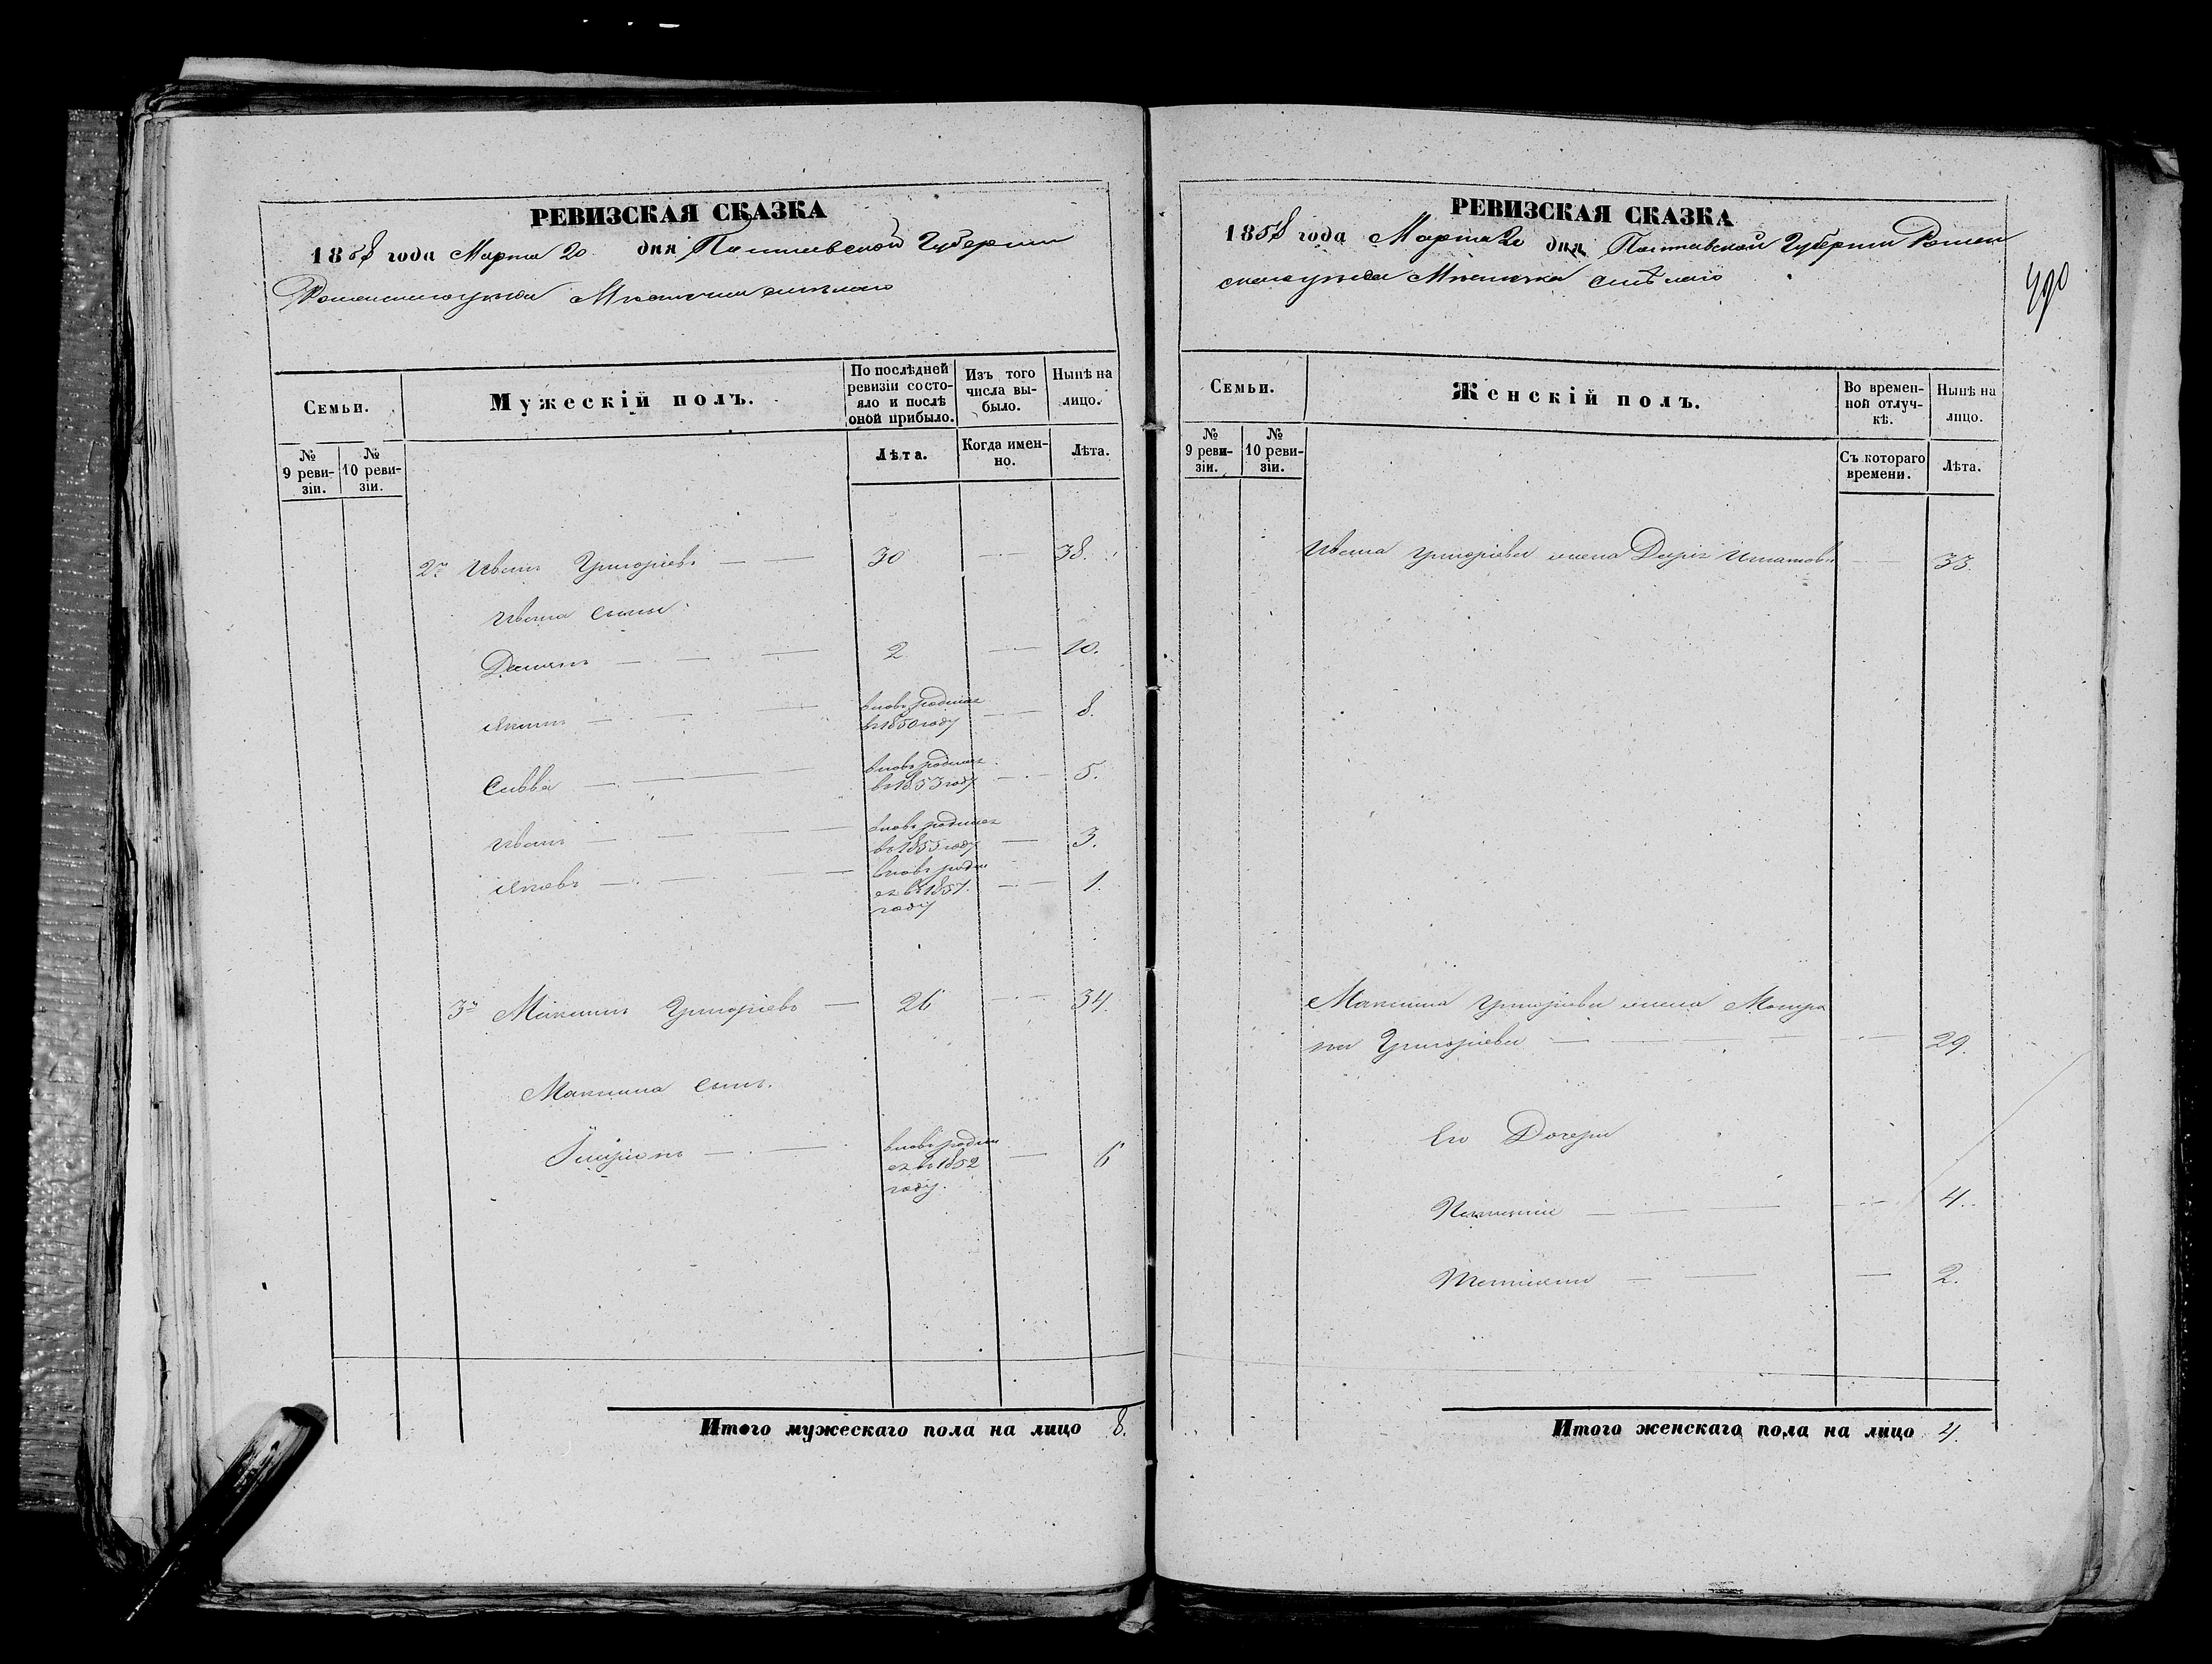 РЕВИЗСКАЯ СКАЗКА
1858 года Марта 20 дня Полтавской Губернии
Роменского уезда Местечка Смелаго
Семьи.
Мужескій полъ.
По послѣдней ревизіи состояло и послѣ оной прибыло.
Изъ того числа выбыло.
Нынѣ на лицо.
№ 9 ревизіи.
№ 10 ревизіи.
Лѣта.
Когда именно.
Лѣта.
2й Иванъ Григоріевъ — — 30 — — 38.
Ивана сыны
Демянъ — — — 2 — — 10.
Якимъ — — — вновь родился
въ 1850 году — — 8.
Савва — — вновь родился
въ 1853 году — — 5.
Иванъ — — — вновь родился
въ 1855 году — 3.
Яковъ — — — вновь роди
ся въ 1857 — — 1.
году
3й Максимъ Григоріевъ — 26 — — 34.
Максима сынъ.
вновь роди
ся въ 1852 — 6
году.
Итого мужескаго пола на лицо 8.
РЕВИЗСКАЯ СКАЗКА
1858 года Марта 20 дня Полтавской Губернии Ромен
скаго уезда Местечка Смѣлаго
490
Семьи.
Женскій полъ.
Во временной отлучкѣ.
Нынѣ на лицо.
№ 9 ревизіи.
№ 10 ревизіи.
Съ котораго времени.
Лѣта.
Ивана Григоріева жена Дарія Игнатова — — 33.
Максима Григоріева жена Мотро
на Григоріева — — — — 29.
Его Дочери
— — — — 4.
Татіяна — — — 2.
Итого женскаго пола на лицо 4.